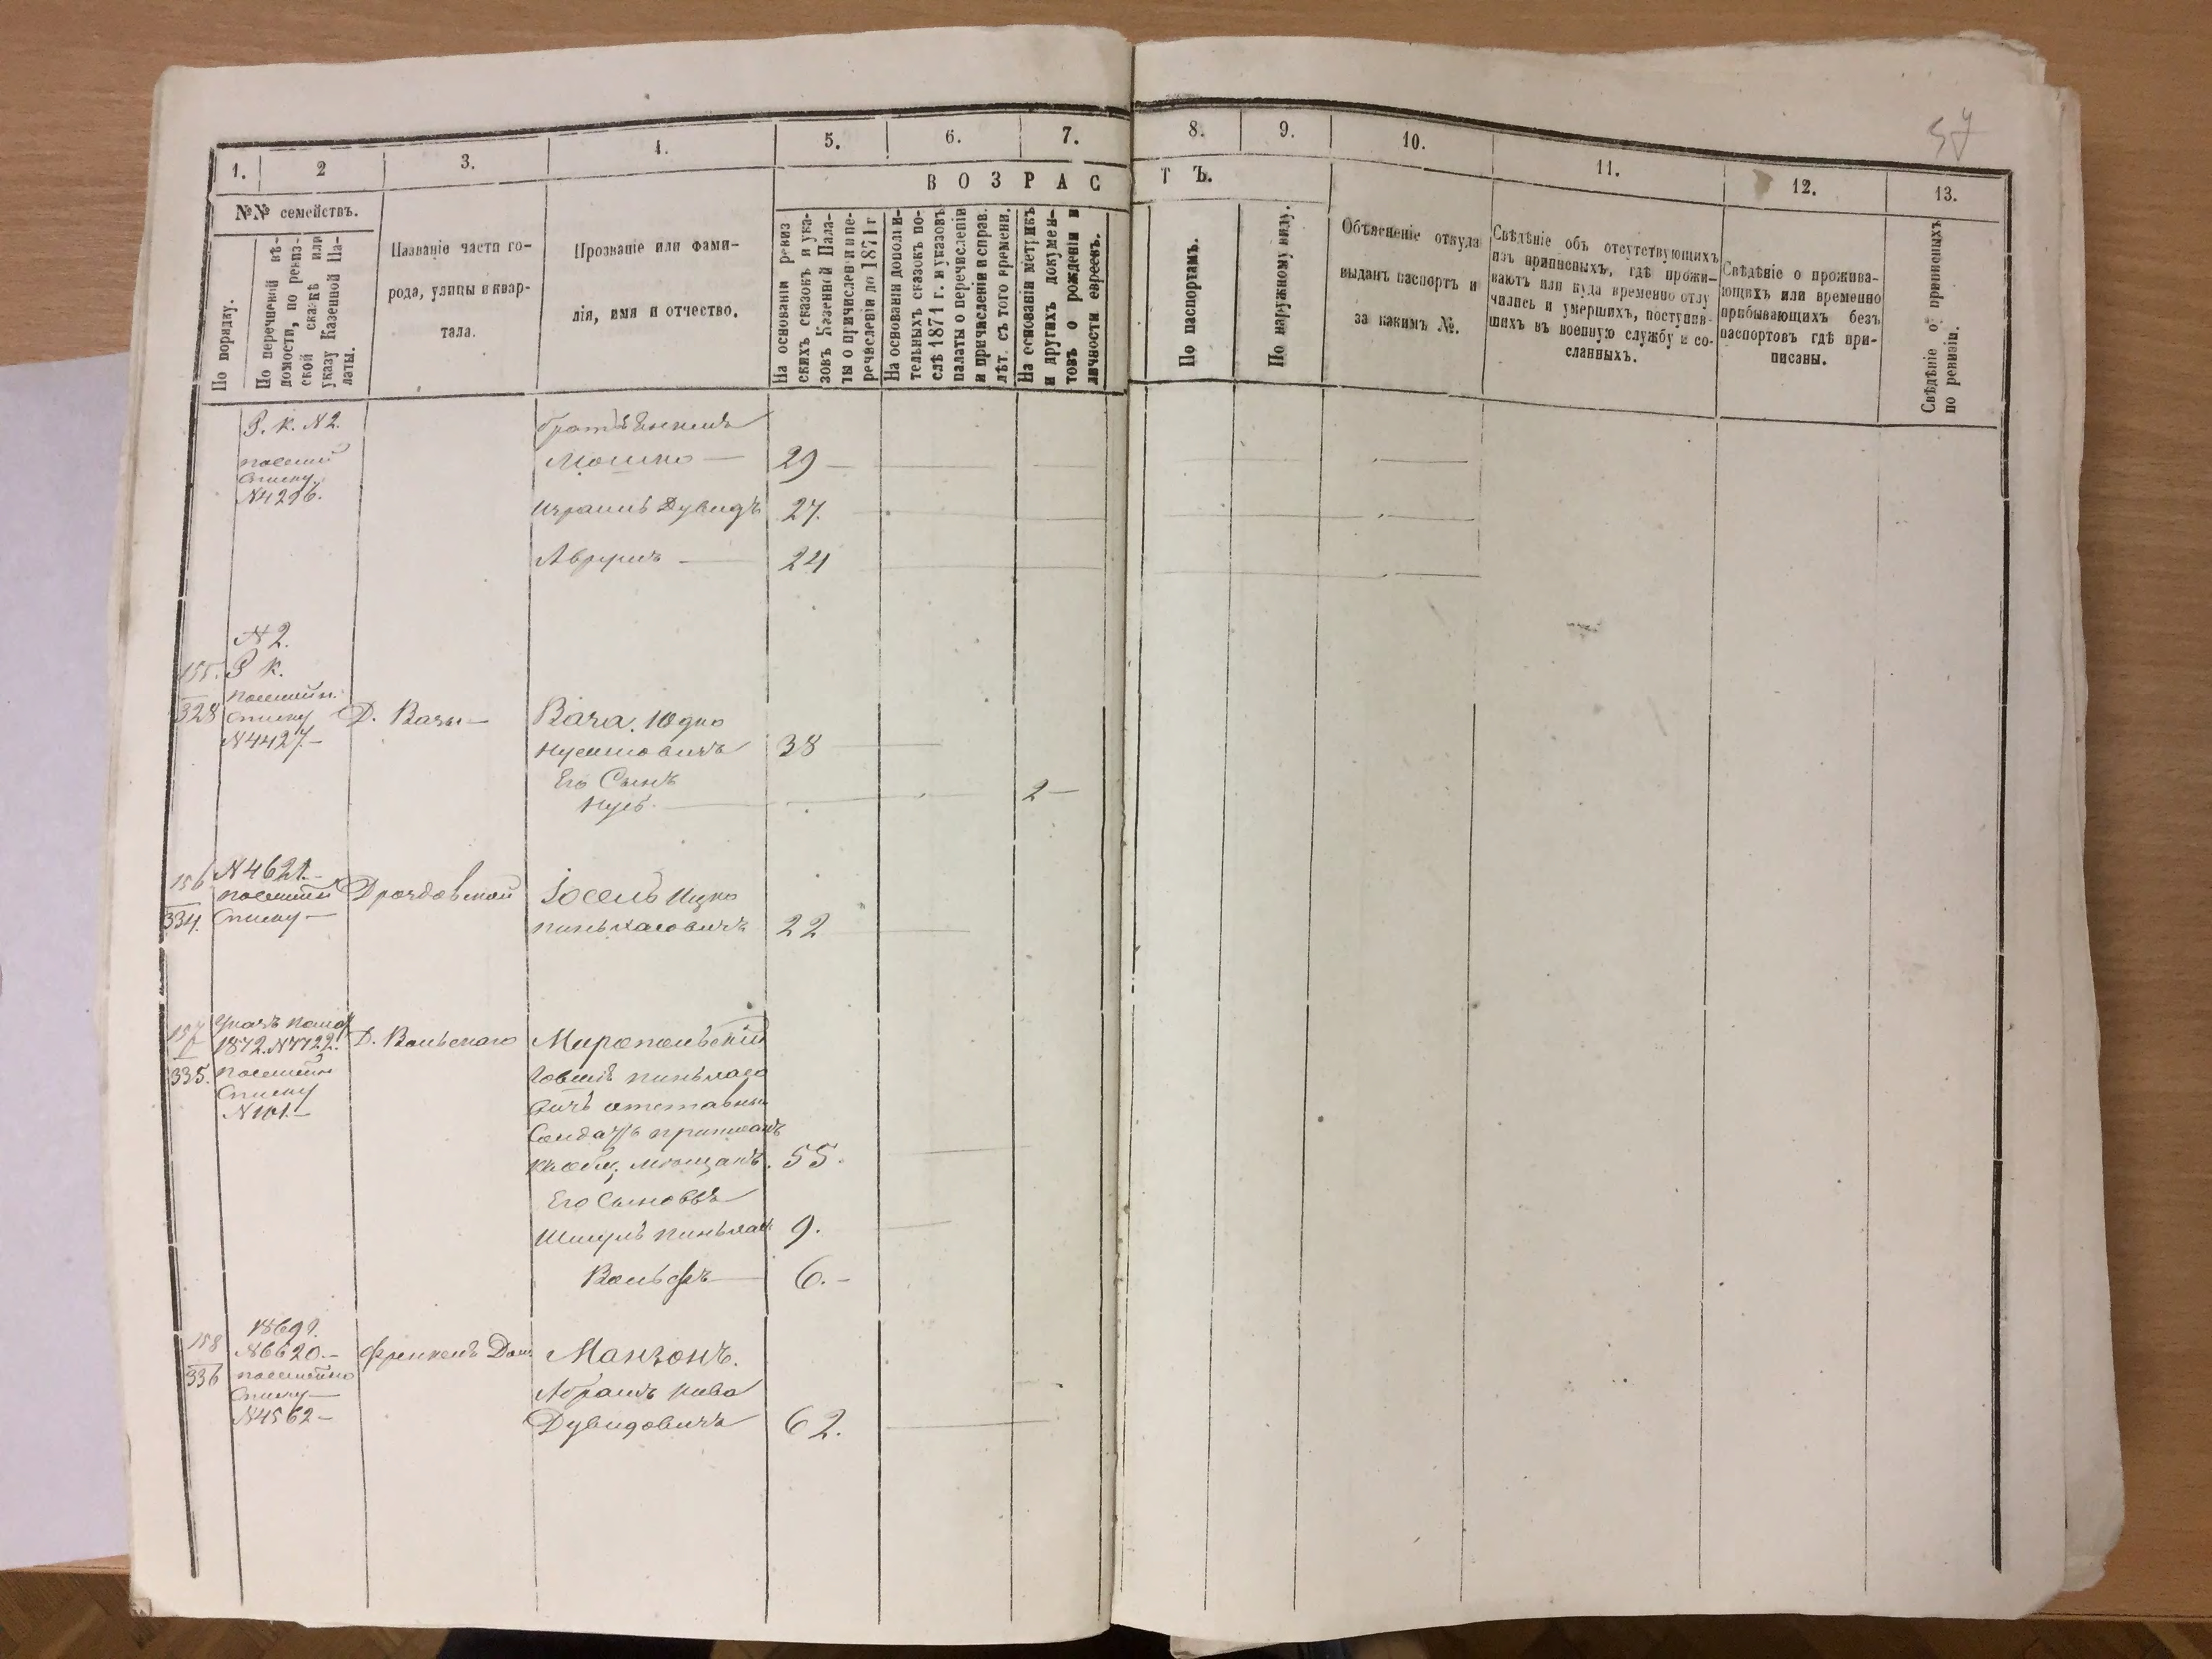 57
1.
2
3.
4.
5.
6.
7.
8.
9.
10.
11.
12.
13.
№№ семействъ.
По порядку.
По перечневой вѣ-
домости, по ревиз-
ской сказкѣ или
указу Казенной Па-
латы.
Названіе части го-
рода, улицы и квар-
тала.
Прозваніе или фами-
лія, имя и отчество.
ВОЗРАС
ТЪ.
На основаніи ревиз
скихъ сказокъ и ука-
зовъ Казенной Пала-
ты о причисленіи и пе-
речисленіи до 1871 г
На основаніи дополни-
тельныхъ сказокъ по-
слѣ 1871 г. и указовъ
палаты о перечисленіи
и причисленіи и справ.
лѣт. съ того времени.
На основаніи метрикъ
и другихъ докумен-
товъ о рожденіи и
личности евреевъ.
По паспортамъ.
По наружному виду.
Объясненіе откуда
выданъ паспортъ и
за какимъ №.
Свѣдѣніе объ отсутствующихъ
изъ приписныхъ, гдѣ прожи-
ваютъ или куда временно отлу
чились и умершихъ, поступив-
шихъ въ военную службу и со-
сланныхъ.
Свѣдѣніе о прожива-
ющихъ или временно
прибывающихъ безъ
паспортовъ гдѣ при-
писаны.
Свѣдѣніе о приписныхъ
по ревизіи.
Р. к. N2.
посемей
списку
N4216.
братъ
Мошко — 29 —
Израиль Дувидъ 27.
Аврумъ — 24
N2.
155. Р к.
328
посемейн.
списку
N4427.—
Д. Вачы —
Вача. Юдко
Нусимовичъ 38
Его Сынъ
2 —
156
334.
N4621.—
посемей
списку —
Дроздовской
Іосель Ицко
Пиньхасовичъ 22
157
335.
Указъ палат
1872. N7722.
посемейн
списку
N101.—
Д. Вольскаго
Миропольскій
Пиньхасо
вичъ отставный
солдатъ приписанъ
мѣщанъ. 55.
Его Сыновья
Шмуль Пиньхас 9.
Вольфъ — 6.—
158
336
1869 г.
N6620.—
посемейно
списку —
N4562 —
Френкель Дом
Манзонъ.
Абрамъ Кива
Дувидовичъ 62.